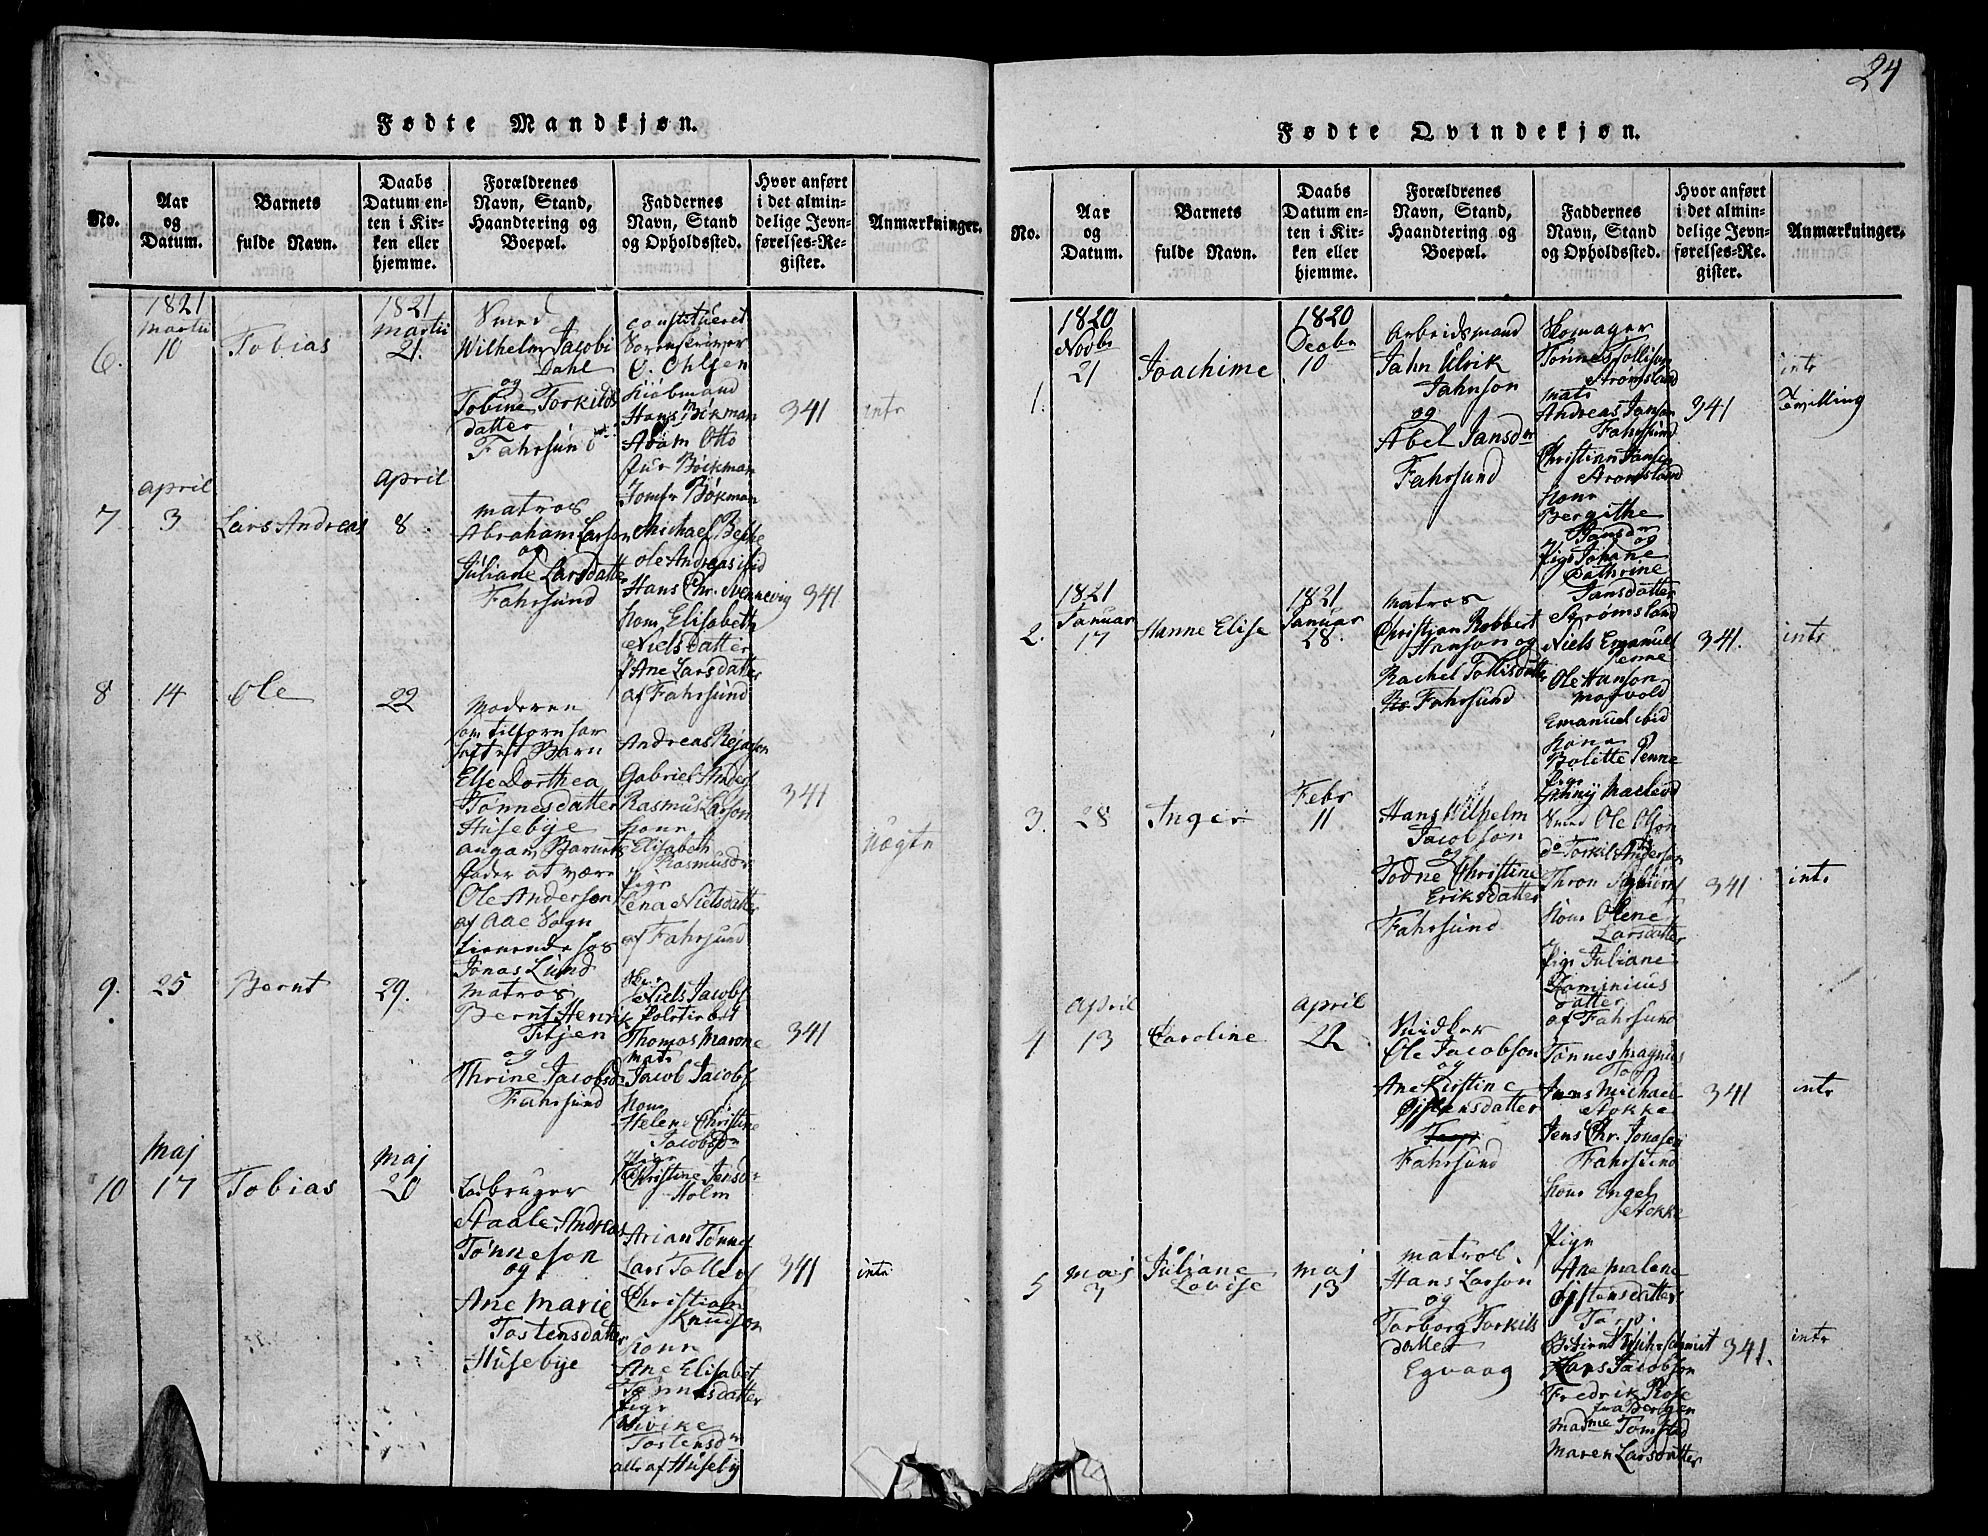 24
Fødte Mandkjøn.
No.
Aar og Datum.
Barnets fulde Navn.
Daabs Datum enten i Kirken eller hjemme.
Forældrenes Navn, Stand, Haandtering og Boepæl.
Faddernes Navn, Stand og Opholdssted.
Hvor anført i det almindelige Jevnførelses-Register.
Anmærkninger.
6.
1821
Martii
10
Tobias
1821
Martii
21.
Smed
Wilhelm Jacobi
Dahl
og
Tobine Torkilds
datter
Fahrsund
constitueret
Sorenskriver
O. Ohlsen
Kiøbmand
Hans Bökman
Adam Otto
Bøckman
Jomfr Bøkman
341
intr
7
April
3
Lars Andreas
April
8.
Matros
Abraham Larson
og
Juliane Larsdatter
Fahrsund
Michael Bekke
Ole Andreas ibid
Hans Chr. Svennevig
Kone Elisabeth
Nielsdatter
P Ane Larsdatter
af Fahrsund
341
8
14
Ole
22
Moderen
som tilforn har
havt et Barn
Else Dorthea
Tønnesdatter
Husebye
angav Barnets
fader at være
Ole Anderson
af Aae Sogn
tienende hos
Jonas Lund
Andreas Rejerson
Gabriel Anders
Rasmus Larson
Kone
Elisabeth
Rasmusdr
Pige
Lena Nielsdatter
af Fahrsund
341
Uægte
9.
25
Bernt
29.
Matros
Bernt Henrik
Titjen
og
Thrine Jacobsd
Fahrsund
Niels Jacobs
Thomas Marone
Matr
Jacob Jacobs
Kone
Helene Christine
Jacobsdr
Pige
Christine Jensdr
Holm
341
10
Maj
17
Tobias
Maj
20
Løbruger
Staale Andreas
Tønneson
og
Ane Marie
Tostensdatter
Husebye
Arian Tønnes
Lars Tollevs
Christian
Knudson
Kone
Ane Elisabet
Tønnesdatter
Pige
Vivike
Tostensdr
alle af Huseby
341
intr
Fødte Qvindekjøn.
No.
Aar og Datum.
Barnets fulde Navn.
Daabs Datum enten i Kirken eller hjemme.
Forældrenes Navn, Stand, Haandtering og Boepæl.
Faddernes Navn, Stand og Opholdssted.
Hvor anført i det almindelige Jevnførelses-Register.
Anmærkninger.
1.
1820
Novbr
21
Joachime
1820
Decbr
10
Arbeidsmand
Jahn Ulrik
Jahnson
og
Abel Jansdr
Fahrsund
Skomager
Tønnes Tollison
Strømsland
Matr
Andreas Janson
Fahrsund
Christian Jansen
Strømsland
Kone
Bergithe
Jansdr
og
Pige Johane
Cathrine
Jansdatter
Strømsland
341
intr
Tvilling
2.
1821
Januar
17
Hanne Elise
1821
Januar
28.
Matros
Christian Robbert
Hanson og
Rachel Tollisdatter
Fahrsund
Niels Emanuels
Jenne
Ole Hanson
Mosvold
Emanuel ibid
Kone
Bolitte Jenne
Pige
Jenny Macleod
341.
intr
3.
28
Inger
Febr
11
Hans Wilhelm
Jacobson
og
Todne Christine
Eriksdatter
Fahrsund
Smed Ole Olson
do Torkil Anderson
Kone Olene
Larsdatter
Pige Juliane
Dominicus
datter
af Fahrsund
341
intr
4
April
13
Caroline
April
22
Snidker
Ole Jacobson
og
Ane Kirstine
Øjstensdatter
Fahrsund
Tønnes Magnus
Torp
Jens Michael
Stokke
Jens Chr. Jonasen
Fahrsund
Kone Engel
Stokke
Pige
Ane Malene
Øjstensdatter
Tarp.
341
intr
5
Maj
3
Juliane
Lovise
Maj
13
Matros.
Hans Larson
og
Torborg Torkils
datter
Egvaag
Hans Jacobson
Fredrik Rose
fra Bergen
Madme Tomstad
Maren Larsdatter
341.
intr